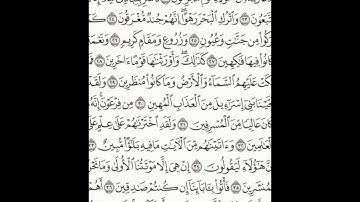 تَّبَعُونَ ٢٣ وَٱتْرُكِ ٱلْبَحْرَ رَهْوًا إِنَّهُمْ جُندٌ مُّغْرَقُونَ ٢٤ كَ
رَكُوا۟ مِن جَنَّٰتٍ وَعُيُونٍ ٢٥ وَزُرُوعٍ وَمَقَامٍ كَرِيمٍ ٢٦ وَنَعْمَةٍ
كَانُوا۟ فِيهَا فَٰكِهِينَ ٢٧ كَذَٰلِكَ وَأَوْرَثْنَٰهَا قَوْمًا ءَاخَرِينَ ٢٨ فَمَا
بَكَتْ عَلَيْهِمُ ٱلسَّمَآءُ وَٱلْأَرْضُ وَمَا كَانُوا۟ مُنظَرِينَ ٢٩ وَلَقَدْ
نَجَّيْنَا بَنِىٓ إِسْرَٰٓءِيلَ مِنَ ٱلْعَذَابِ ٱلْمُهِينِ ٣٠ مِن فِرْعَوْنَ إِنَّهُۥ
كَانَ عَالِيًا مِّنَ ٱلْمُسْرِفِينَ ٣١ وَلَقَدِ ٱخْتَرْنَٰهُمْ عَلَىٰ عِلْمٍ عَلَى
٣٢ وَءَاتَيْنَٰهُم مِّنَ ٱلْءَايَٰتِ مَا فِيهِ بَلَٰٓؤٌا۟ مُّبِينٌ ٣٣
نَّ هَٰٓؤُلَآءِ لَيَقُولُونَ ٣٤ إِنْ هِىَ إِلَّا مَوْتَتُنَا ٱلْأُولَىٰ وَمَا نَحْنُ
مُنشَرِينَ ٣٥ فَأْتُوا۟ بِـَٔابَآئِنَآ إِن كُنتُمْ صَٰدِقِينَ ٣٦ أَهُمْ